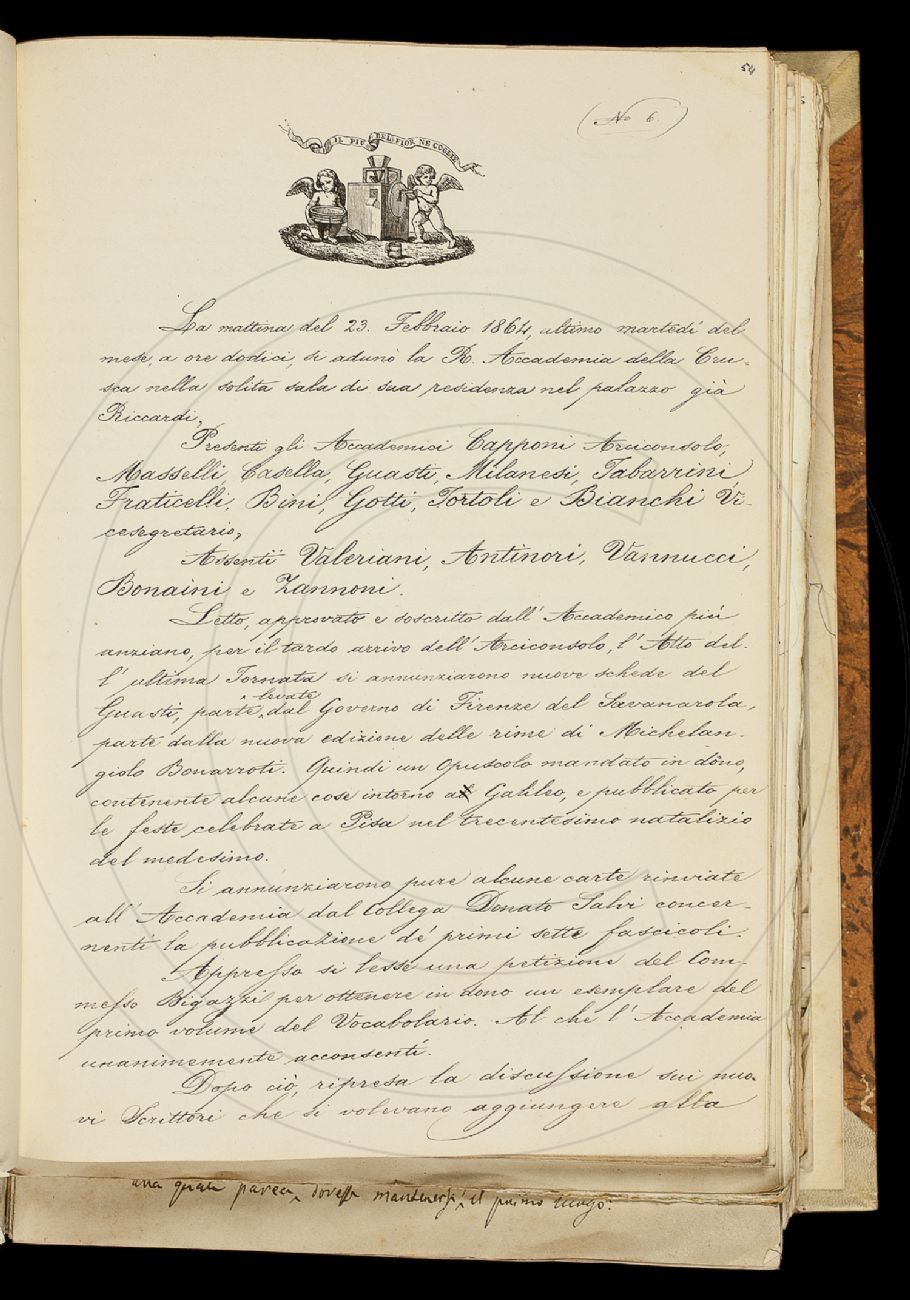 54
No 6.
IL PIÙ BEL FIOR NE COGLIE
La mattina del 23. Febbraio 1864, ultimo martedì del
mese, a ore dodici, si adunò la R. Accademia della Cru-
sca nella solita sala di sua residenza nel palazzo già
Riccardi,
Presenti gli Accademici Capponi Arciconsolo,
Masselli, Casella, Guasti, Milanesi, Tabarrini
Fraticelli, Bini, Gotti, Tortoli e Bianchi Vi-
cesegretario,
Assenti Valeriani, Antinori, Vannucci,
Bonaini e Zannoni.
Letto, approvato e soscritto dall' Accademico più
anziano, per il tardo arrivo dell' Arciconsolo, l' Atto del-
l' ultima Tornata si annunziarono nuove schede del
Guasti, parte levate dal Governo di Firenze del Savanarola,
parte dalla nuova edizione delle rime di Michelan-
giolo Bonarroti. Quindi un Opuscolo mandato in dono,
contenente alcune cose intorno a Galileo, e pubblicato per
le feste celebrate a Pisa nel trecentesimo natalizio
del medesimo.
Si annunziarono pure alcune carte rinviate
all' Accademia dal Collega Donato Salvi concer-
nenti la pubblicazione de' primi sette fascicoli.
Appresso si lesse una petizione del Com-
messo Bigazzi per ottenere in dono un esemplare del
primo volume del Vocabolario. Al che l' Accademia
unanimemente acconsentì.
Dopo ciò, ripresa la discussione sui nuo-
vi Scrittori che si volevano aggiungere alla
una quale parea dovesse mantenersi il primo luogo.